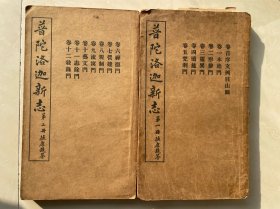 卷首序文
卷一本迹門
卷二形勝門
卷三靈異門
卷四檀施門
卷五梵刹門
普陀洛迦新志 第一册
卷六禪德門
卷七營建門
卷八規制門
卷九流寓門
卷十藝文門
卷十一志餘門
卷十二敘錄門
普陀洛迦新志